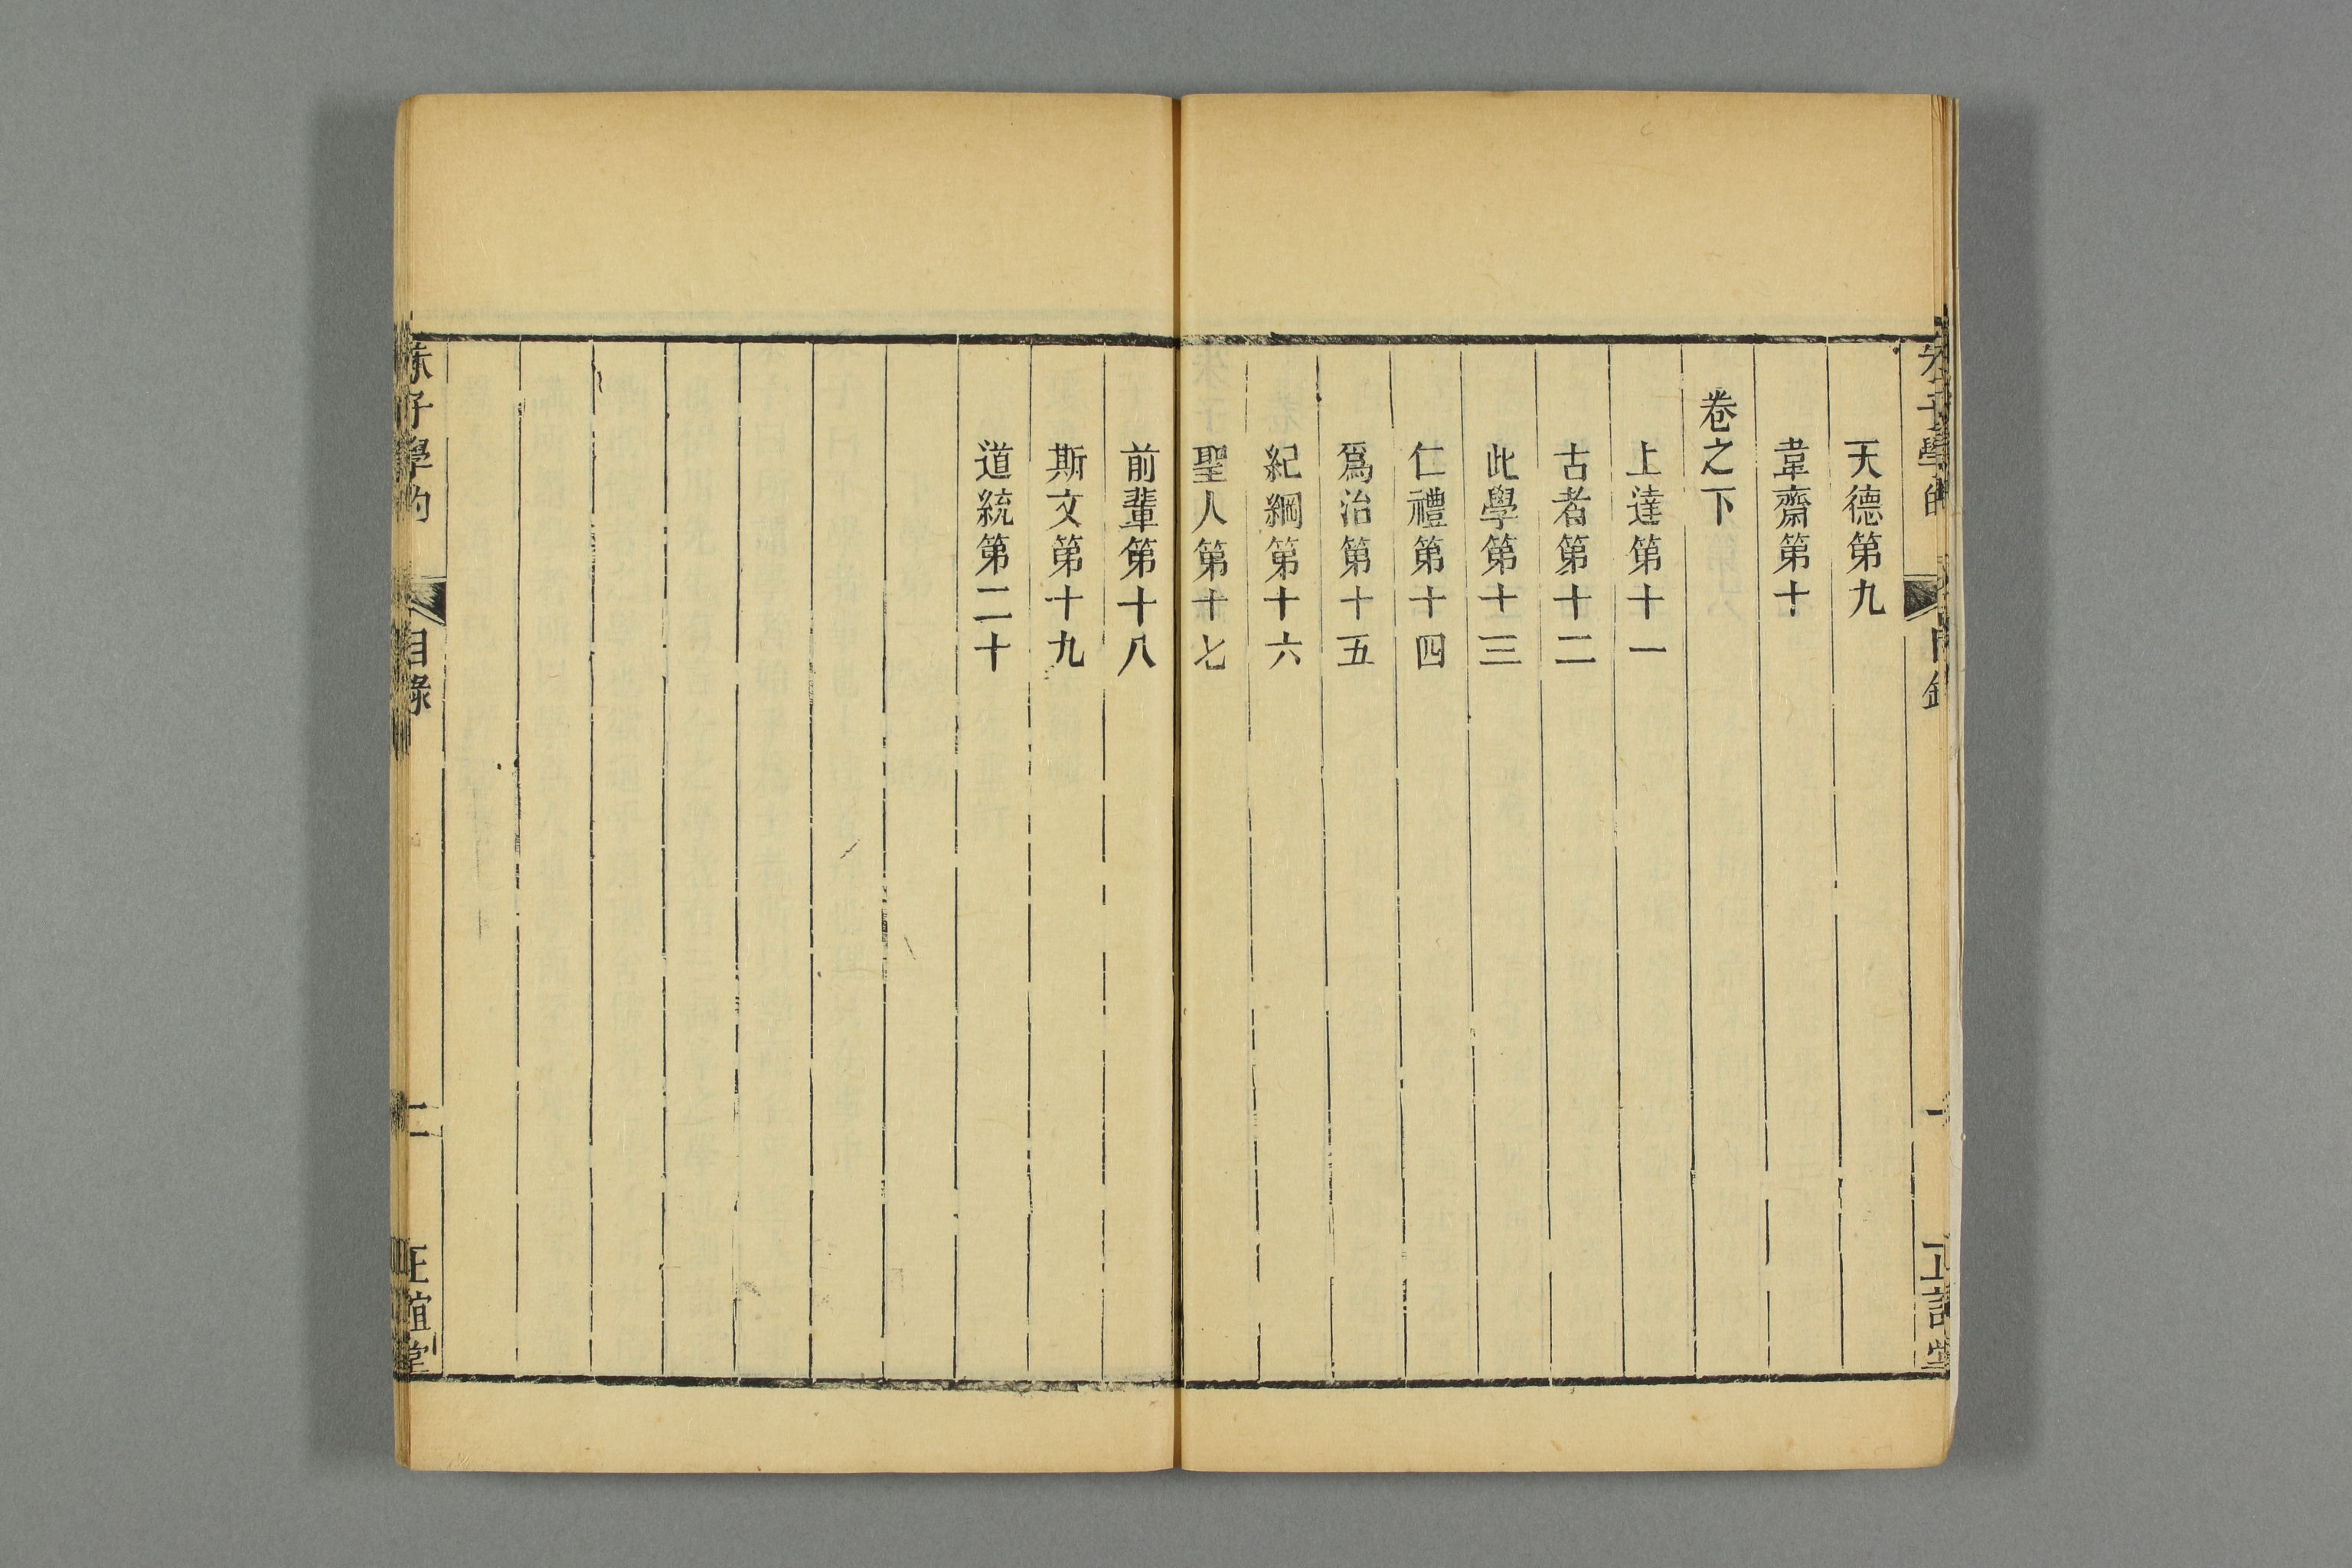 天德第九
韋齋第十
卷之下
上達第十一
古者第十二
此學第十三
仁禮第十四
爲治第十五
紀綱第十六
聖人第十七
前輩第十八
斯文第十九
道統第二十
朱子學的
目錄
二
正誼堂